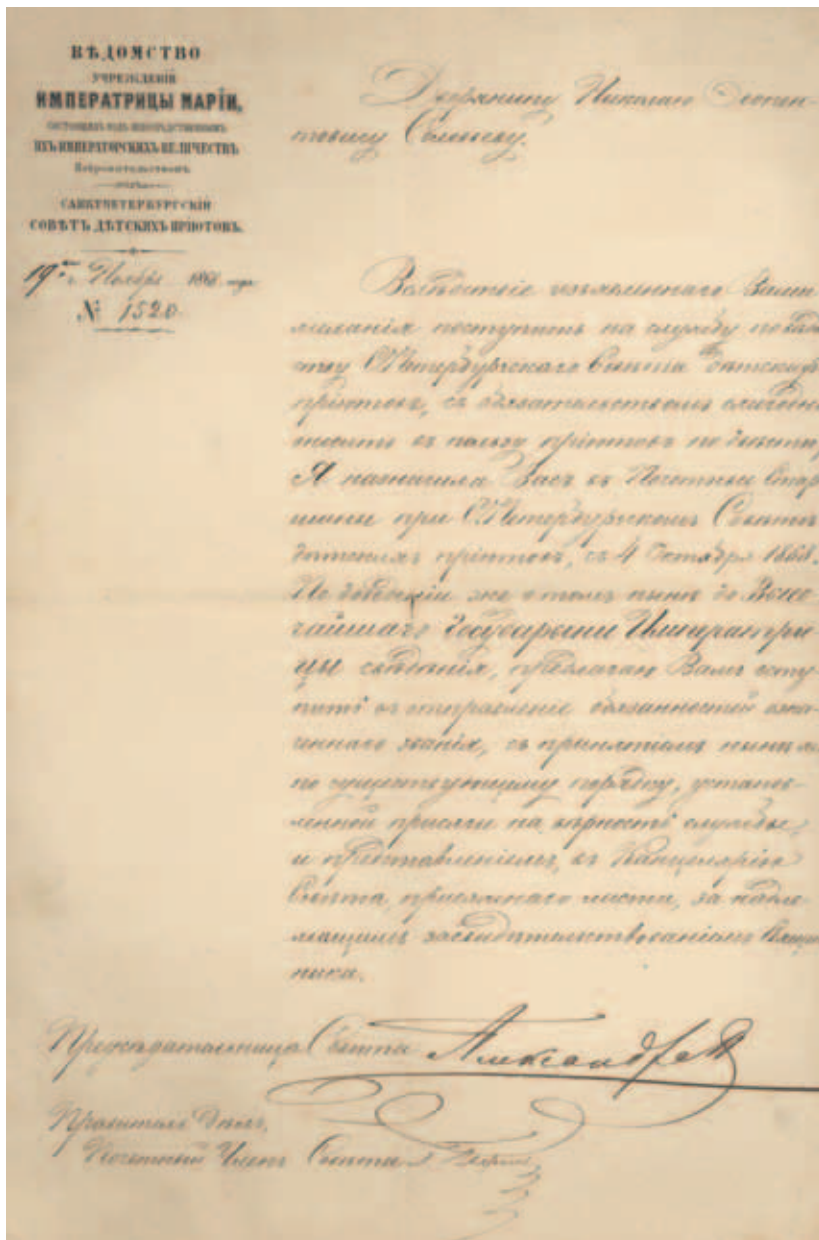 ВѢДОМСТВО
УЧРЕЖДЕНІЙ
ИМПЕРАТРИЦЫ МАРІИ,
СОСТОЯЩИХЪ ПОДЪ НЕПОСРЕДСТВЕННЫМЪ
ИХЪ ИМПЕРАТОРСКИХЪ ВЕЛИЧЕСТВЪ
Покровительствомъ
САНКТПЕТЕРБУРГСКІЙ
СОВѢТЪ ДѢТСКИХЪ ПРІЮТОВЪ.
19 Ноября 1868 года
№ 1520
Дворянину Николаю
Соловьеву.
Вслѣдствіе изъявленнаго Вами
желанія поступить на службу по вѣдом
ству С.Петербургскаго Совѣта дѣтскихъ
пріютовъ, съ обязательствомъ ежегодно
вносить въ пользу пріютовъ по
Я назначила Васъ въ Почетные Стар
шины при С.Петербургскомъ Совѣтѣ
дѣтскихъ пріютовъ, съ 4 Октября 1868.
По доведеніи же о томъ нынѣ до Высо
чайшаго Государыни Императри
цы свѣдѣнія, предлагаю Вамъ всту
пить въ отправленіе обязанностей озна
ченнаго званія, съ принятіемъ нынѣ же
по существующему порядку, установ
ленной присяги на вѣрность службы,
и представленіемъ, въ Канцелярію
Совѣта, присяжнаго листа, за надле
жащимъ засвидѣтельствованіемъ Священ
ника.
Предсѣдательница Совѣта Александра
Правитель дѣлъ,
Почетный Членъ Совѣта